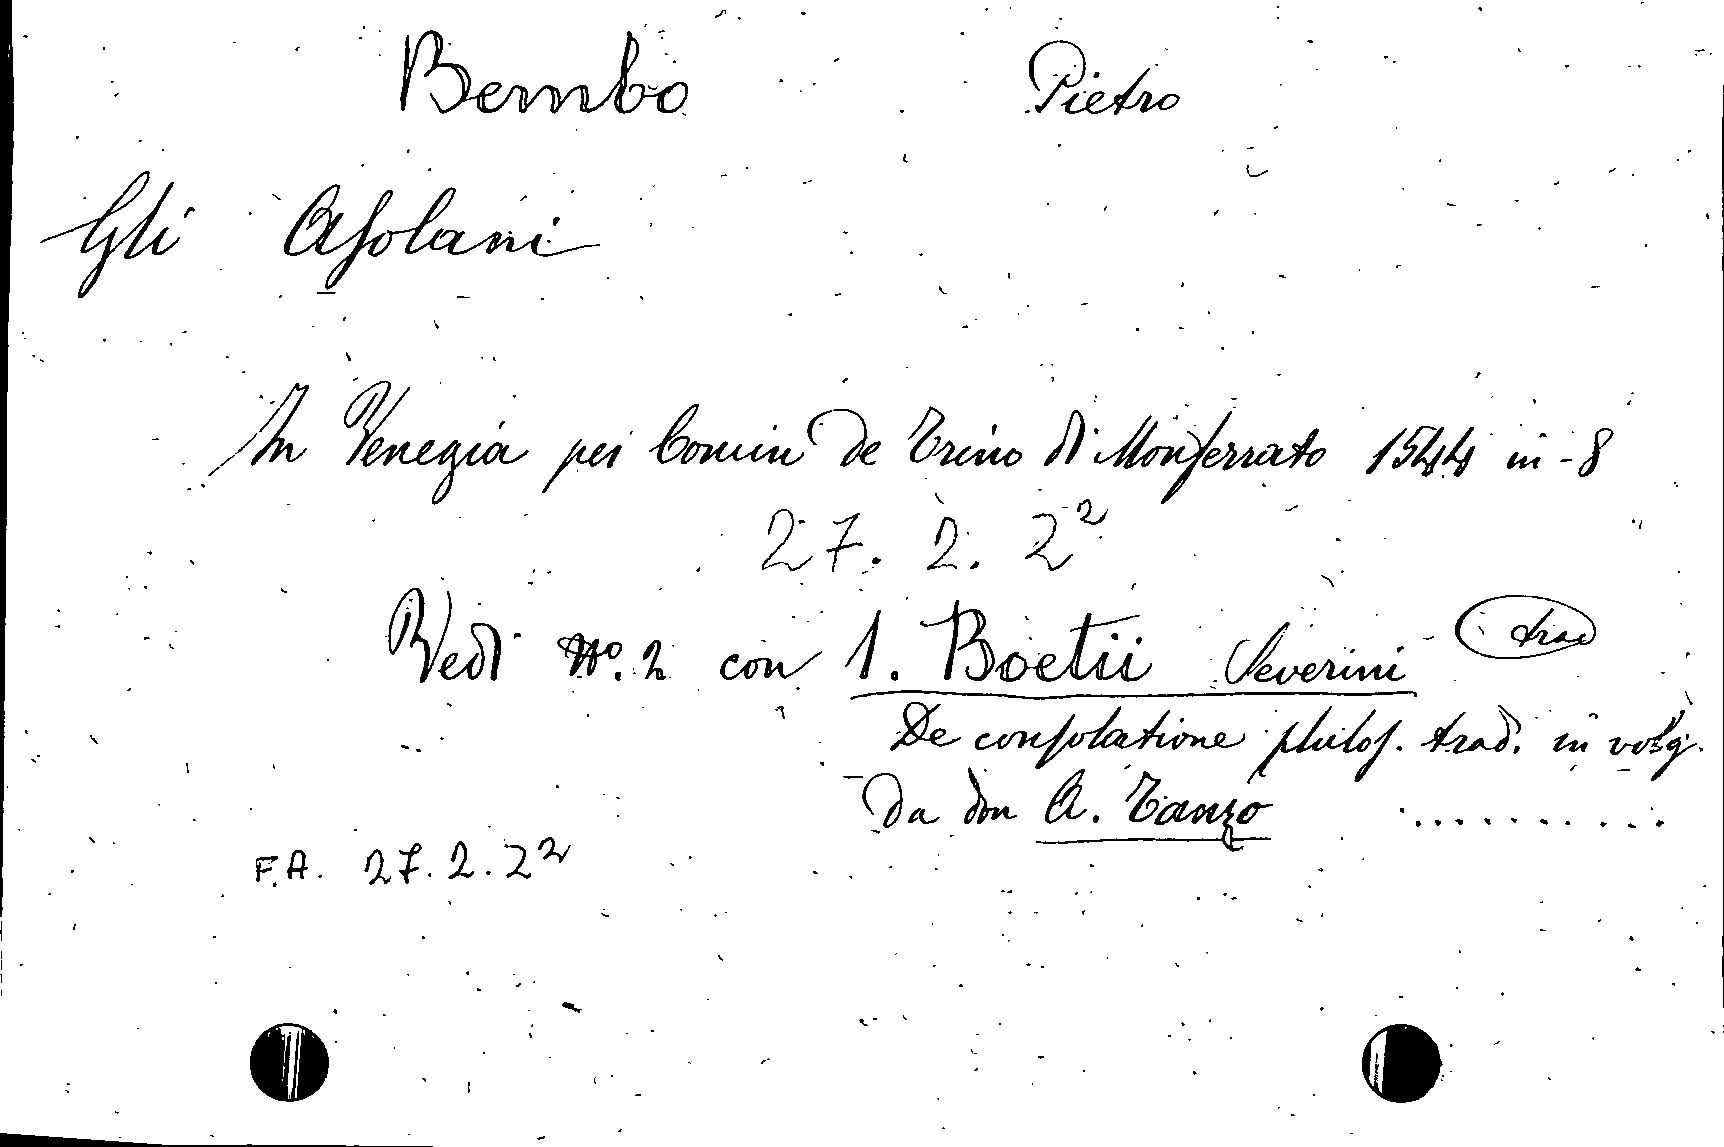 Bembo Pietro
Gli Aſolani
In Venegia per Comin de Trino di Monferrato 1544 in-8
27. 2. 2²
Vedi No. 2 con 1. Boetii Severini trad
De conſolatione philoſ. trad. in volg.
da don A. Tanzo ..........
F.A. 27.2.2²